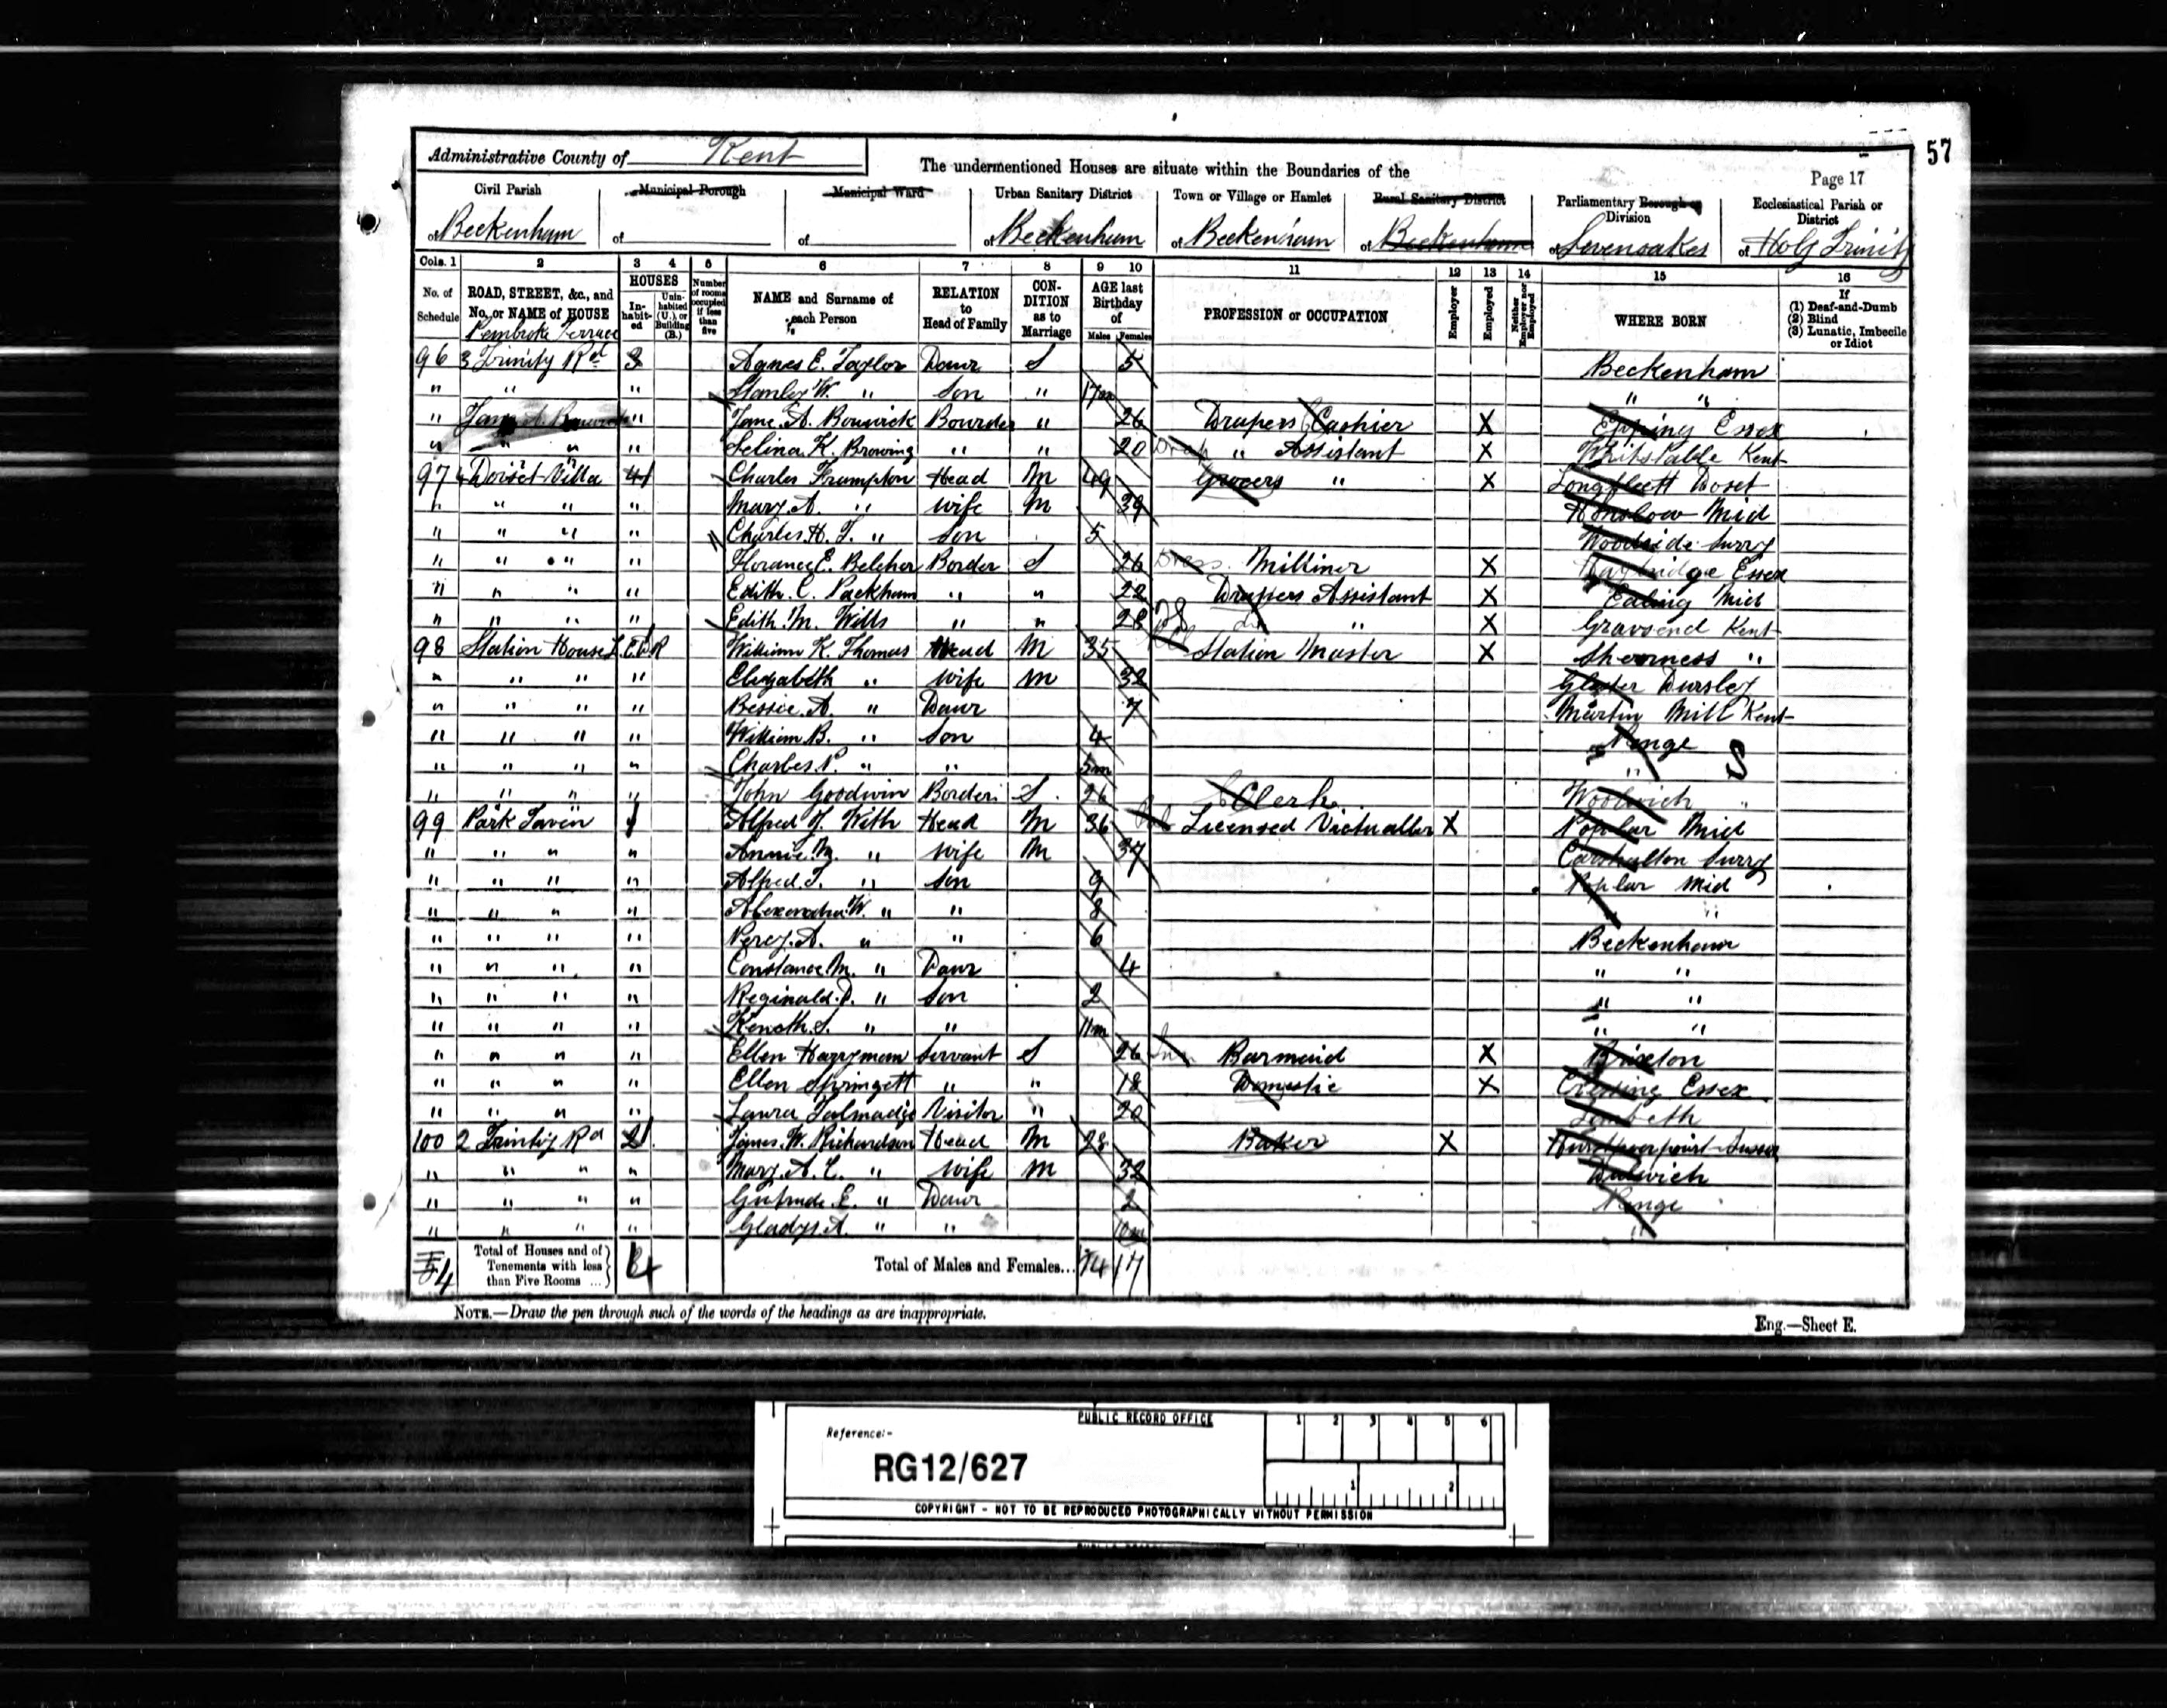 57
Administrative County of Kent
The undermentioned Houses are situate within the Boundaries of the
Page 17
Civil Parish
Municipal Borough
Municipal Ward
Urban Sanitary District
Town or Village or Hamlet
Rural Sanitary District
Parliamentary Borough or Division
Ecclesiastical Parish or District
of Beckenham
of
of
of Beckenham
of Beckenham
of Beckenham
of Sevenoakes
of Holy Trinity
Cols. 1 2 3 4 5 6 7 8 9 10 11 12 13 14 15 16
No. of Schedule
ROAD, STREET, &c., and No. or NAME of HOUSE
HOUSES
Inhabited
Uninhabited (U.), or Building (B.)
Number of rooms occupied if less than five
NAME and Surname of each Person
RELATION to Head of Family
CONDITION as to Marriage
AGE last Birthday of
Males Females
PROFESSION or OCCUPATION
Employer
Employed
Neither Employer nor Employed
WHERE BORN
If
(1) Deaf-and-Dumb
(2) Blind
(3) Lunatic, Imbecile or Idiot
Pembroke Terrace
96 3 Trinity Rd 3 Agnes E. Taylor Daur S 5 Beckenham
" " " Stanley W. " Son " 17m " "
" " Jane A. Bourder " 26 Drapers Cashier X Epping Essex
" " " " Selina K. Browing " " 20 " Assistant X Whitstable Kent
97 4 Dorset Villa 4 Charles Frampton Head M 49 Grocers " X Longfleett Doset
" " " " Mary A. " wife M 39 Honslow Mid
" " " " Charles H. T. " Son 5 Woodside Surry
" " " " Florance E. Belcher Border S 26 Milliner X Essex
" " " " Edith C. Packham " " 22 Drapers Assistant X Ealing Mid
" " " " Edith M. Wills " " 28 do " X Gravsend Kent
98 Station House William K. Thomas Head M 35 Station Master X Sheerness "
" " " " Elizabeth " wife M 32 Gloster Dursley
" " " " Bessie A. " Daur 7 Martin Mill Kent
" " " " William B. " Son 4 Penge S
" " " " Charles P. " " 5m "
" " " " John Goodwin Border S 26 Clerk Woolwich "
99 Park Tavern 1 Alfred J. With Head M 36 Licensed Victualler X Poplar Mid
" " " " Annie M. " wife M 37 Carshalton Surry
" " " " Alfred T. " Son 9 Poplar Mid
" " " " W. " " 8 "
" " " " Percy A. " " 6 Beckenham
" " " " Constance M. " Daur 4 " "
" " " " Reginald D. " Son 2 " "
" " " " Keneth S. " " 11m " "
" " " " Ellen Harryman Servant S 26 Inn Barmaid X Brixton
" " " " Ellen Springett " " 18 Domestic X Cressing Essex
" " " " Laura Talmadge Visitor " 20 Lambeth
100 2 Trinity Rd 2 James W. Richardson Head M 28 Baker X Hurstpierpoint Sussex
" " " " Mary A. E. " wife M 32 Dulwich
" " " " Gertrude E. " Daur 2 Penge
" " " " Gladys A. " " 10m "
4 Total of Houses and of Tenements with less than Five Rooms ... 4 Total of Males and Females... 14 17
NOTE.—Draw the pen through such of the words of the headings as are inappropriate.
Eng.—Sheet E.
PUBLIC RECORD OFFICE
1 2 3 4 5 6
Reference:-
RG12/627
1 2
COPYRIGHT - NOT TO BE REPRODUCED PHOTOGRAPHICALLY WITHOUT PERMISSION